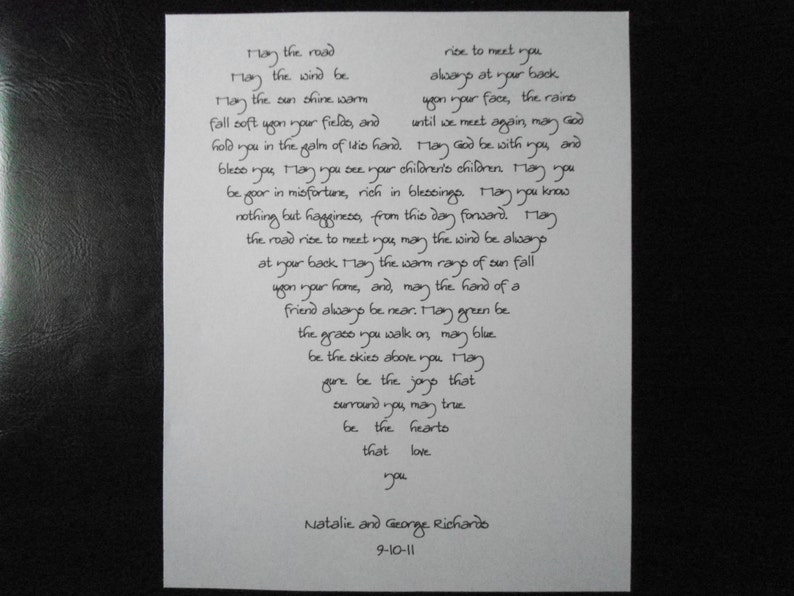 May the road rise to meet you.
May the wind be always at your back.
May the sun shine warm upon your face, the rains
fall soft upon your fields, and until we meet again, may God
hold you in the palm of His hand. May God be with you, and
bless you, May you see your children's children. May you
be poor in misfortune, rich in blessings. May you know
nothing but happiness, from this day forward. May
the road rise to meet you, may the wind be always
at your back. May the warm rays of sun fall
upon your home, and, may the hand of a
friend always be near. May green be
the grass you walk on, may blue
be the skies above you. May
pure be the joys that
surround you, may true
be the hearts
that love
you.
Natalie and George Richards
9-10-11